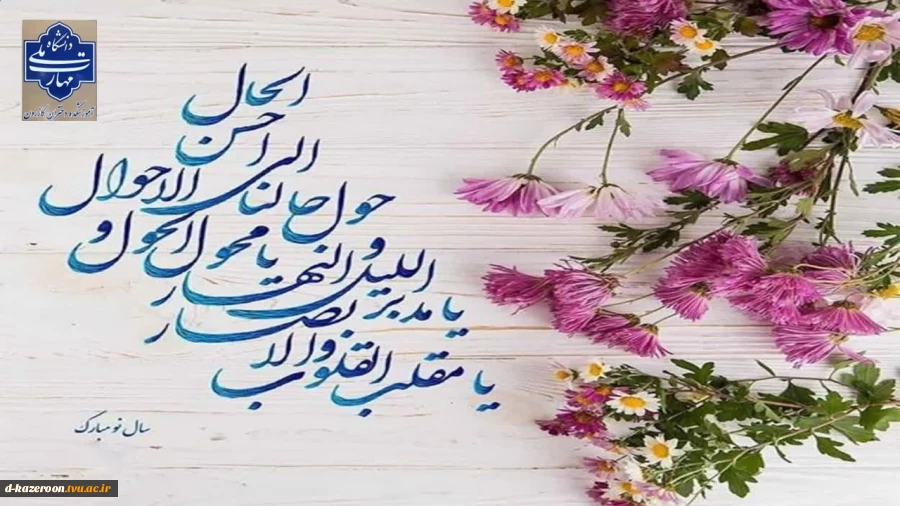 دانشگاه
ملی
مهارت
آموزشکده دختران کازرون
یا مقلب القلوب والابصار
یا مدبر اللیل و النهار
یا محول الحول و الاحوال
حول حالنا الی احسن الحال
سال نو مبارک
d-kazeroon.tvu.ac.ir